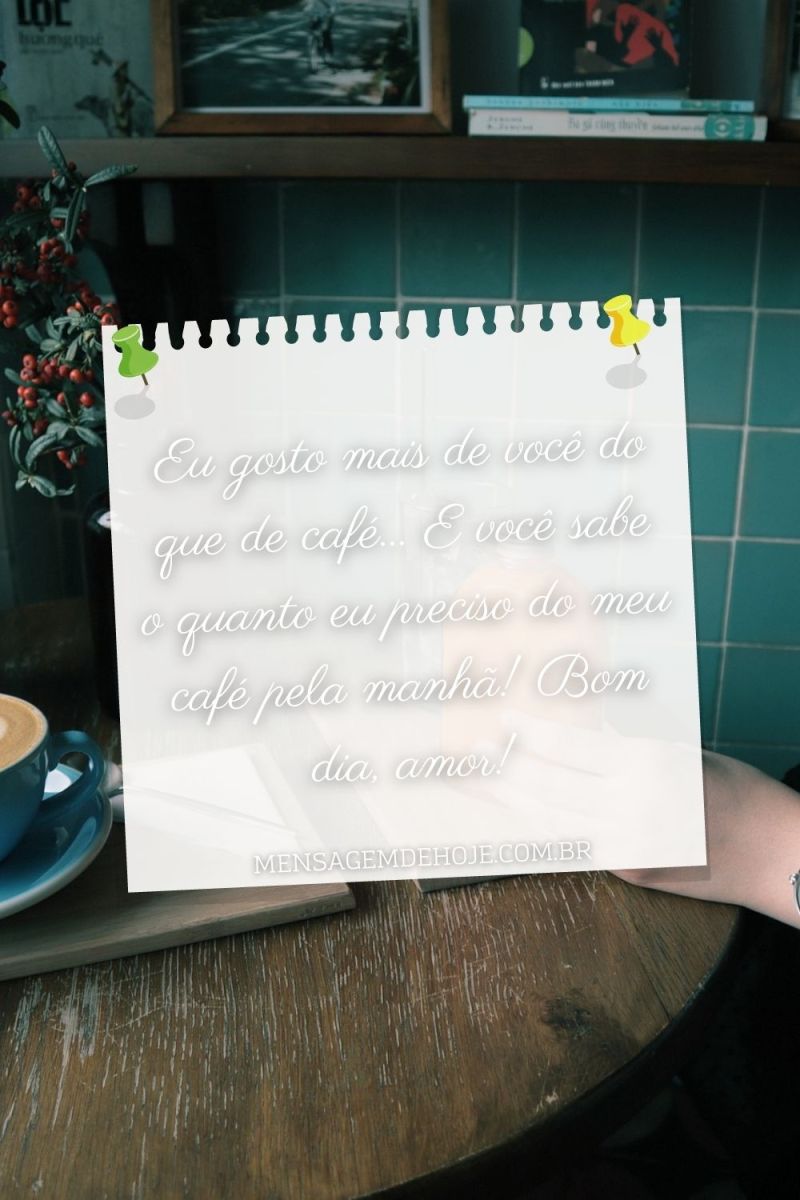 LỘC
hương quê
Eu gosto mais de você do
que de café... E você sabe
o quanto eu preciso do meu
café pela manhã! Bom
dia, amor!
MENSAGEMDEHOJE.COM.BR